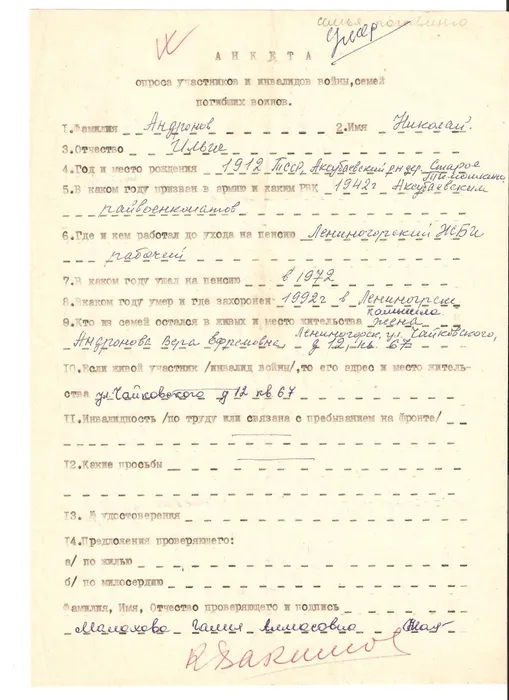 семья погибшего
Умер
АНКЕТА
опроса участников и инвалидов войны, семей
погибших воинов.
1. Фамилия Андронов 2. Имя Николай.
3. Отчество Ильич
4. Год и место рождения 1912 ТССР, Аксубаевский р-н дер. Старое Тимошкино
5. В каком году призван в армию и каким РВК 1942г Аксубаевским
райвоенкоматов
6. Где и кем работал до ухода на пенсию Лениногорский ЖБИ
рабочей
7. В каком году ушел на пенсию в 1972
8. Вкаком году умер и где захоронен 1992г в Лениногрске
9. Кто из семей остался в живых и место жительства жена
Андронова Вера Ефремовна, Лениногорск, ул. Чайковского, д 12, кв 67
10. Если живой участник /инвалид войны/, то его адрес и место житель-
ства ул Чайковского д 12 кв 67
11. Инвалидность /по труду или связана с пребыванием на фронте/
12. Какие просьбы
13. № удостоверения
14. Предложения проверяющего:
а/ по жилью
б/ по милосердию
Фамилия, Имя, Отчество проверяющего и подпись
Малахова Галия Алмасовна